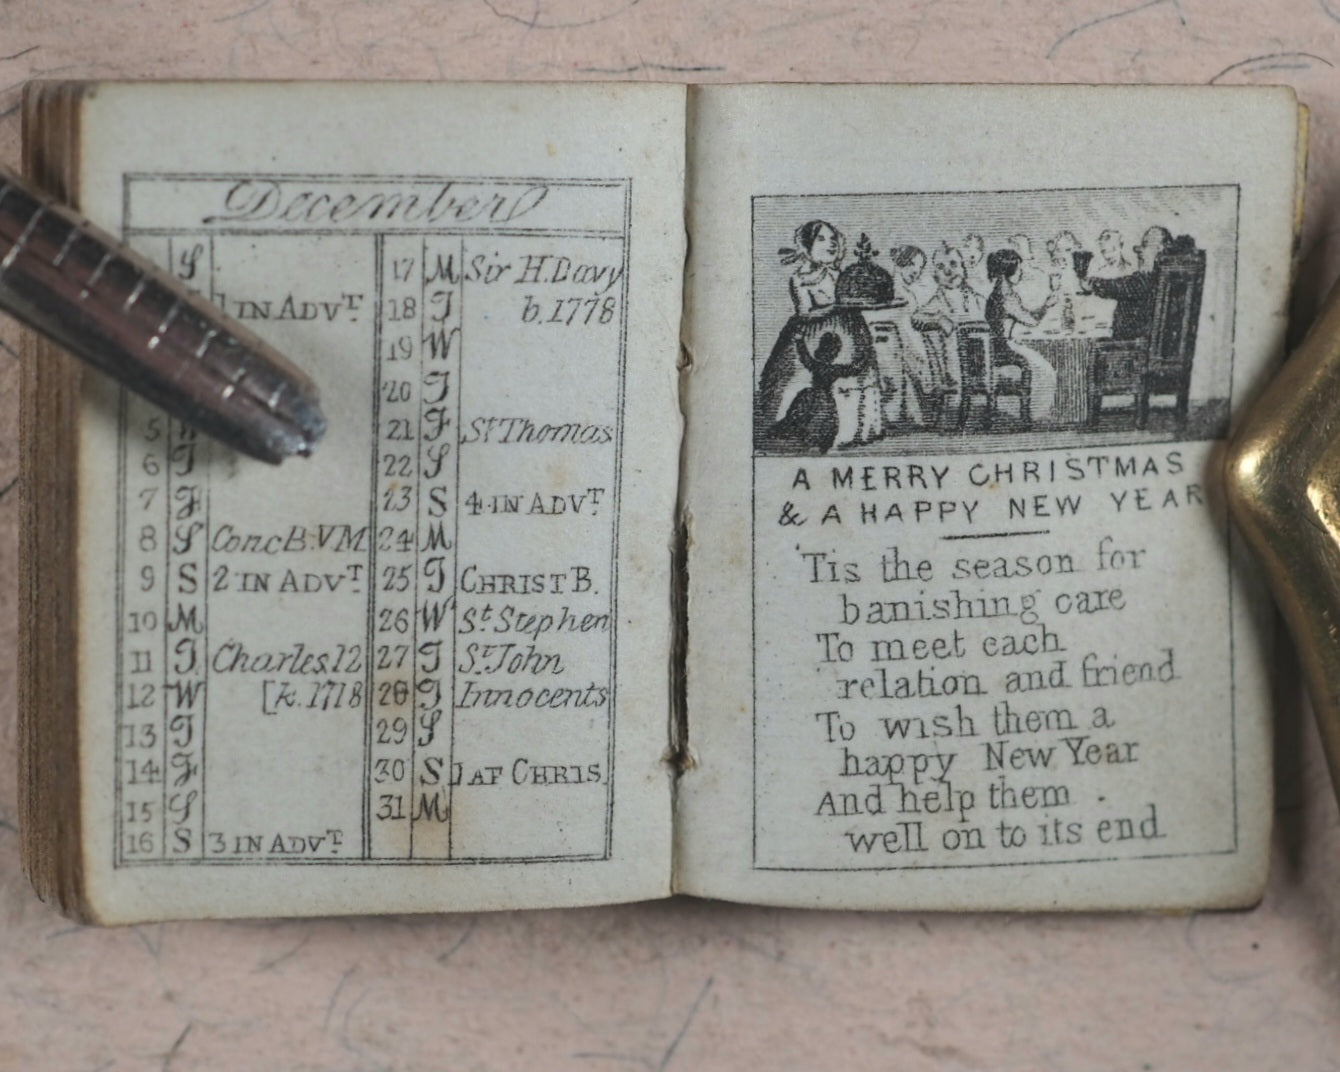 December
S
1 IN ADVT
5
6 T
7 F
8 S Conc B.VM
9 S 2 IN ADVT
10 M
11 T Charles 12
12 W [k. 1718
13 T
14 F
15 S
16 S 3 IN ADVT
17 M Sir H. Davy
18 T b. 1778
19 W
20 T
21 F St Thomas
22 S
23 S 4 IN ADVT
24 M
25 T CHRIST B.
26 W St Stephen
27 T St John
28 F Innocents
29 S
30 S 1 AF CHRIS.
31 M
A MERRY CHRISTMAS
& A HAPPY NEW YEAR
'Tis the season for
banishing care
To meet each
relation and friend
To wish them a
happy New Year
And help them
well on to its end